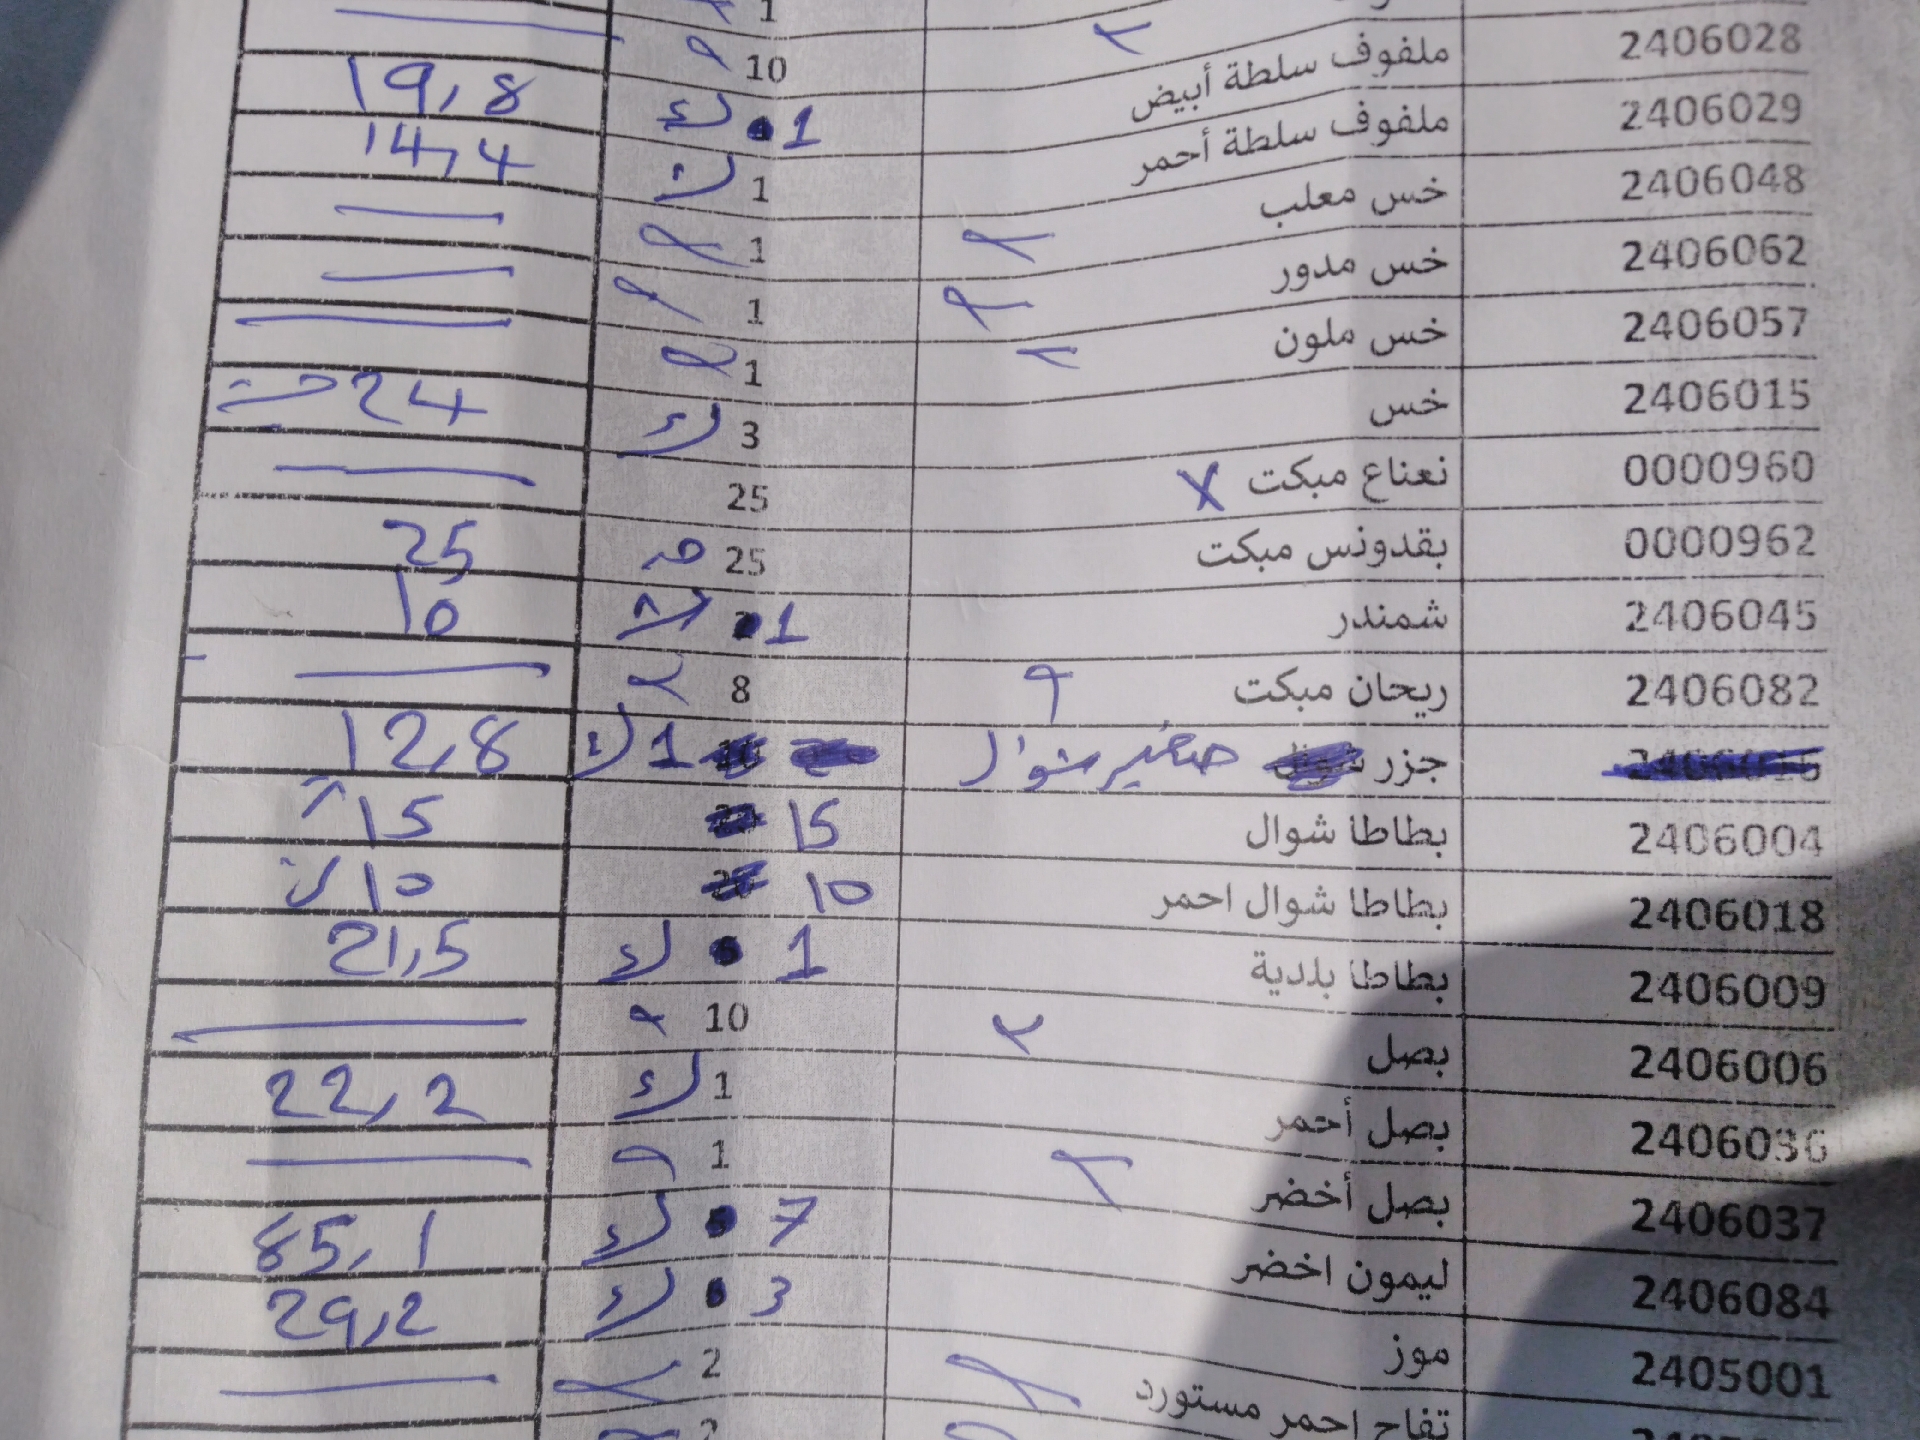 1
10
2406028 ملفوف سلطة أبيض 1 ك 19,8
2406029 ملفوف سلطة أحمر 1 ك 14,4
2406048 خس معلب 1
2406062 خس مدور 1
2406057 خس ملون 1
2406015 خس 3 ك 24
0000960 نعناع مبكت X 25
0000962 بقدونس مبكت 25 25
2406045 شمندر 1 10
2406082 ريحان مبكت 8
جزر صغير شوال 1 ك 12,8
2406004 بطاطا شوال 15 15
2406018 بطاطا شوال احمر 10 10
2406009 بطاطا بلدية 1 ك 21,5
2406006 بصل 10
2406036 بصل أحمر 1 ك 22,2
2406037 بصل أخضر 1
2406084 ليمون اخضر 7 ك 85,1
2405001 موز 3 ك 29,2
تفاح احمر مستورد 2
2